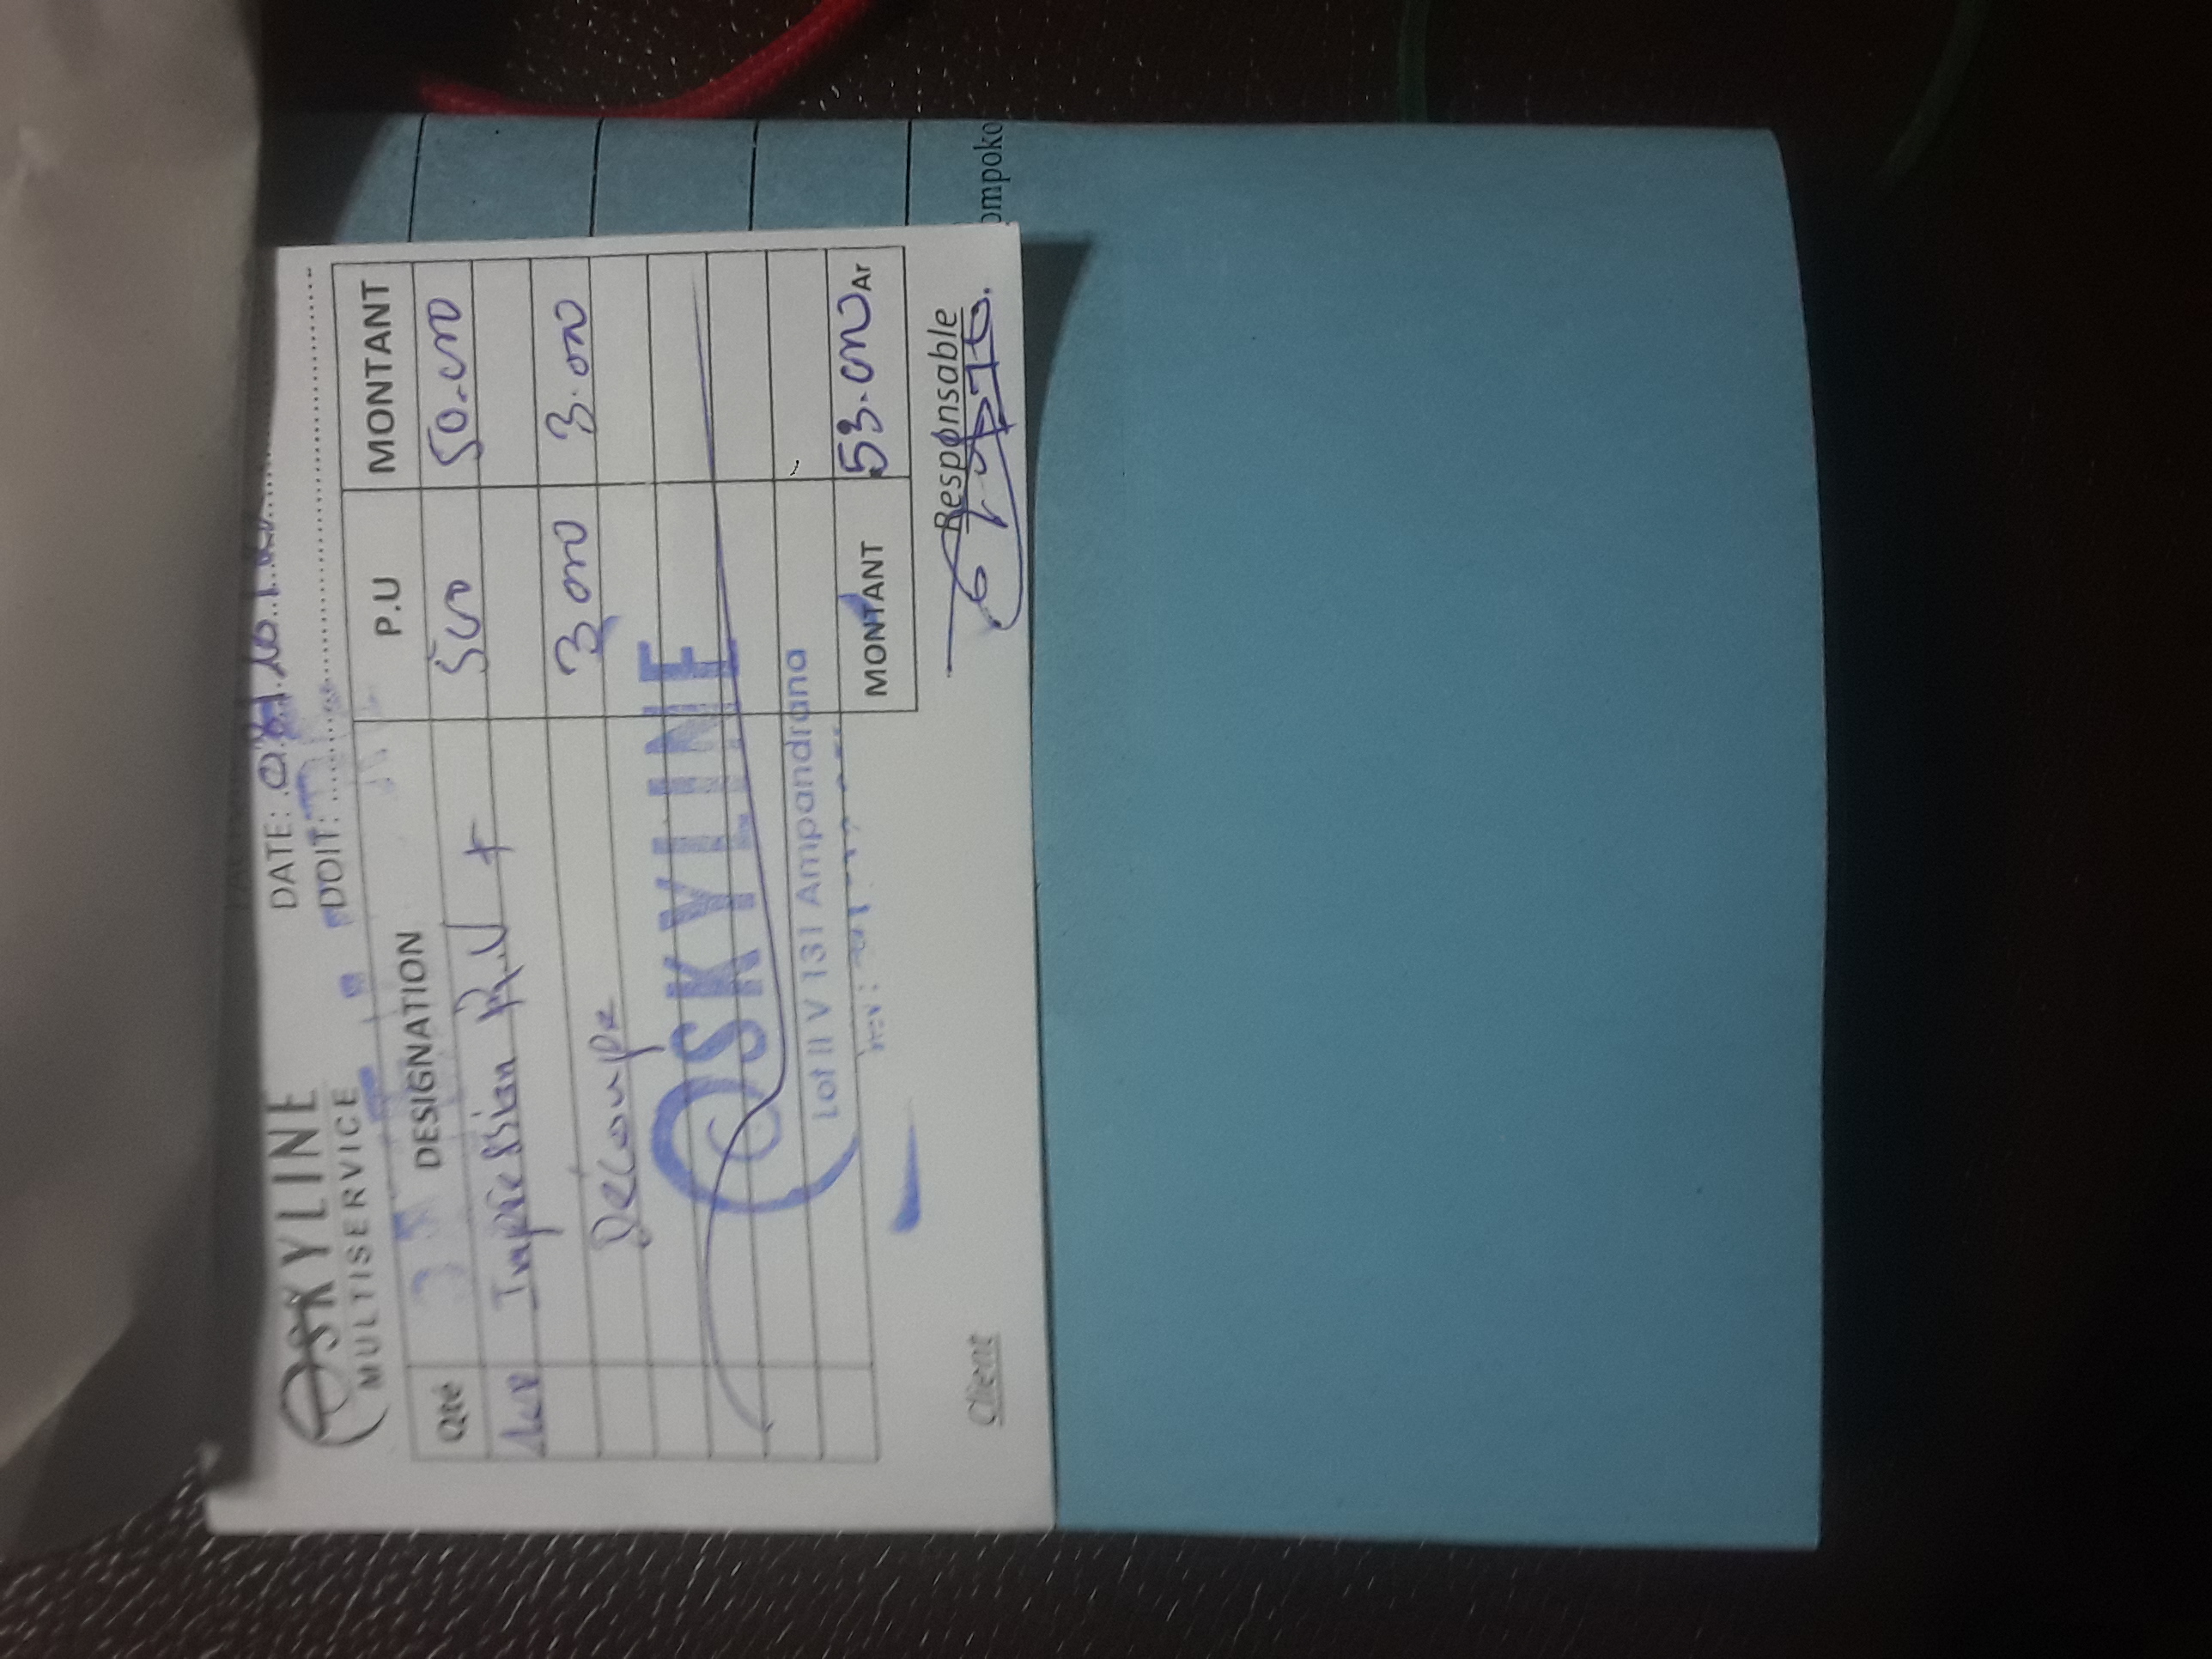 SKYLINE
MULTISERVICE
DATE: 08/10/
DOIT:
Qté DESIGNATION P.U MONTANT
100 Impression R.V + 500 50.000
Découpe 3 000 3.000
SKYLINE
Lot II V 131 Ampandrana
MONTANT 53.000 Ar
Client
Responsable
ompoko